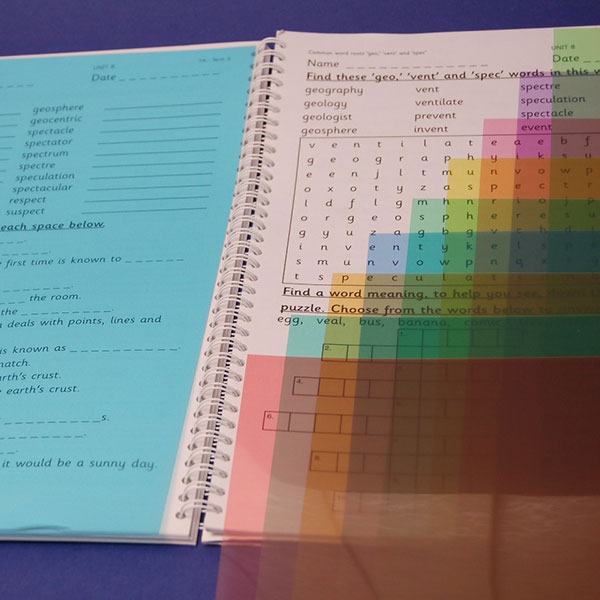 UNIT 8
7A - Term 3
Date _ _ _ _ _ _ _ _ _
geosphere
geocentric
spectacle
spectator
spectrum
spectre
speculation
spectacular
respect
suspect
each space below.
first time is known to _ _ _ _ _ _
_ _ _ _ the room.
the _ _ _ _ _ _ _ _ _ _.
deals with points, lines and
is known as _ _ _ _ _ _ _ _ _ _.
natch.
arth's crust.
earth's crust.
_ _ _ _ _ _ _ _ _s.
it would be a sunny day.
Common word roots 'geo,' 'vent' and 'spec'
UNIT 8
Name _ _ _ _ _ _ _ _ _ _ _ _ _ _
Date _ _
Find these 'geo,' 'vent' and 'spec' words in this w
geography vent spectre
geology ventilate speculation
geologist prevent spectacle
geosphere invent event
v e n t i l a t e a e b f
g e o g r a p h y k s u
e e n j l t m u n v o w p
o x o t y z a s p e c t r
l d f l g m h n r i o j p
o r g e o s p h e r e s u
g y u z a g b g v t h d i
i n v e n t y k e l s p
s m u n v o w p n q x r
t s p e c u l a t
Find a word meaning, to help you see, down t
puzzle. Choose from the words below to
egg, veal, bus, banana,
2.
4.
6.
8.